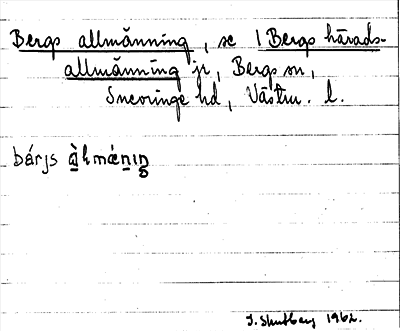 Bergs allmänning, se 1 Bergs härads-
allmänning jr, Bergs sn,
Snevringe hd, Västm. l.
bárjs àlmǽnıŋ
1962.